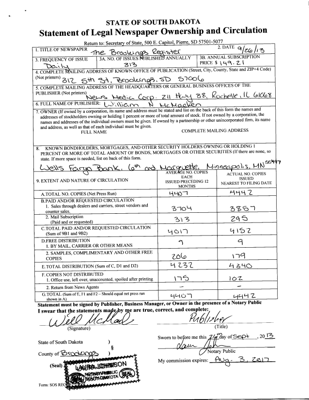 STATE OF SOUTH DAKOTA
Statement of Legal Newspaper Ownership and Circulation
Return to: Secretary of State, 500 E. Capitol, Pierre, SD 57501-5077
1. TITLE OF NEWSPAPER The Brookings Register 2. DATE
3. FREQUENCY OF ISSUE Daily 3A. NO. OF ISSUES PUBLISHED ANNUALLY 3B. ANNUAL SUBSCRIPTION PRICE $
4. COMPLETE MAILING ADDRESS OF KNOWN OFFICE OF PUBLICATION (Street, City, County, State and ZIP+4 Code)
(Not printers) 312 5th St, Brookings, SD 57006
5. COMPLETE MAILING ADDRESS OF THE HEADQUARTERS OR GENERAL BUSINESS OFFICES OF THE
PUBLISHER (Not printers) News Media Corp. 211 Hwy 38, Rochelle, IL 61068
6. FULL NAME OF PUBLISHER: William N McMacken
7. OWNER (If owned by a corporation, its name and address must be stated and on the back of this form the names and
addresses of stockholders owning or holding 1 percent or more of total amount of stock. If not owned by a corporation, the
names and addresses of the individual owners must be given. If owned by a partnership or other unincorporated firm, its name
and address, as well as that of each individual must be given.
FULL NAME COMPLETE MAILING ADDRESS
8. KNOWN BONDHOLDERS, MORTGAGES, AND OTHER SECURITY HOLDERS OWNING OR HOLDING 1
PERCENT OR MORE OF TOTAL AMOUNT OF BONDS, MORTGAGES OR OTHER SECURITIES (If there are none, so
state. If more space is needed, list on back of this form.
Wells Fargo Bank, 6th and Marquette, Minneapolis, MN
9. EXTENT AND NATURE OF CIRCULATION
AVERAGE NO. COPIES EACH ISSUED PRECEDING 12 MONTHS
ACTUAL NO. COPIES ISSUED NEAREST TO FILING DATE
A. TOTAL NO. COPIES (Net Press Run) 4407 4442
B. PAID AND/OR REQUESTED CIRCULATION
1. Sales through dealers and carriers, street vendors and
counter sales. 3704 3857
2. Mail Subscription
(Paid and or requested) 313 295
C. TOTAL PAID AND/OR REQUESTED CIRCULATION
(Sum of 9B1 and 9B2) 4017 4152
D. FREE DISTRIBUTION
1. BY MAIL, CARRIER OR OTHER MEANS 9 9
2. SAMPLES, COMPLIMENTARY AND OTHER FREE
COPIES 206 179
E. TOTAL DISTRIBUTION (Sum of C, D1 and D2) 4232 4340
F. COPIES NOT DISTRIBUTED
1. Office use, left over, unaccounted, spoiled after printing 175 102
2. Return from News Agents – –
G. TOTAL (Sum of E, F1 and F2 - Should equal net press run
shown in A) 4407 4442
Statement must be signed by Publisher, Business Manager, or Owner in the presence of a Notary Public
I swear that the statements made by me are true, correct, and complete:
Publisher
(Signature) (Title)
State of South Dakota )
County of Brookings ) §
Sworn to before me this day of Sept, 2013
(Seal)
Notary Public
My commission expires: Aug. 3, 2017
NOTARY PUBLIC
SOUTH DAKOTA